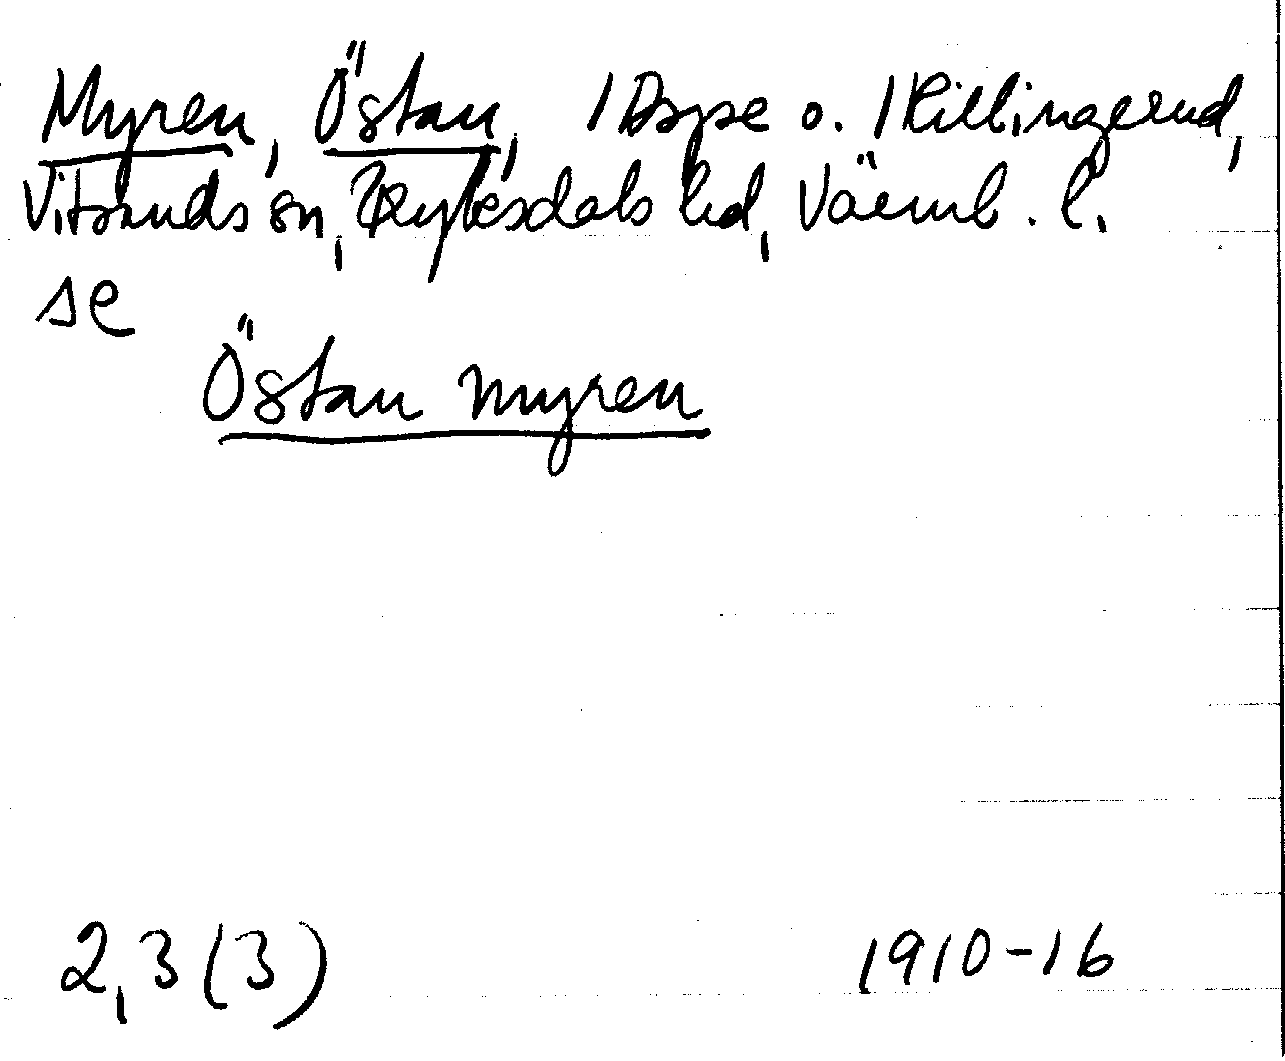 Myren, Östan, /Dype o. /Killingerud,
Vitsands sn, Fryksdals hd, Värml. l.
se
Östan myren
2,3 (3) 1910-16